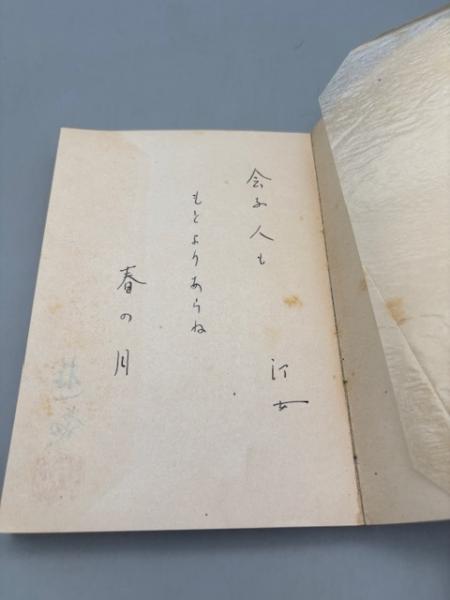 会ふ人も
もとよりあらね
春の月
汀女